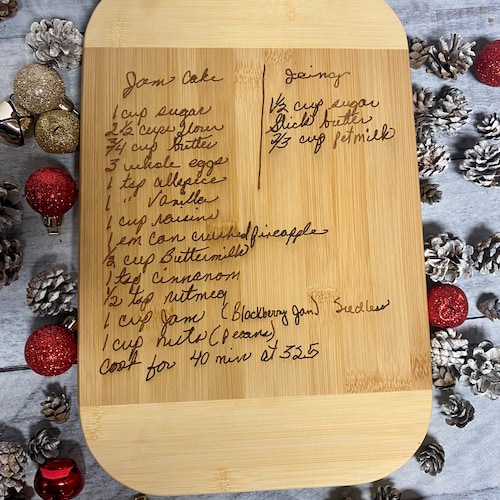 Jam Cake
1 cup sugar
2 1/2 cups flour
3/4 cup butter
3 whole eggs
1 tsp allspice
1 " vanilla
1 cup raisins
1 em can crushed pineapple
1/2 cup Buttermilk
1 tsp cinnanom
1/2 tsp nutmeg
1 cup Jam (Blackberry Jam) Seedless
1 cup nuts (Pecans)
cook for 40 min at 325
Icing
1 1/2 cup sugar
Stick butter
2/3 cup petmilk